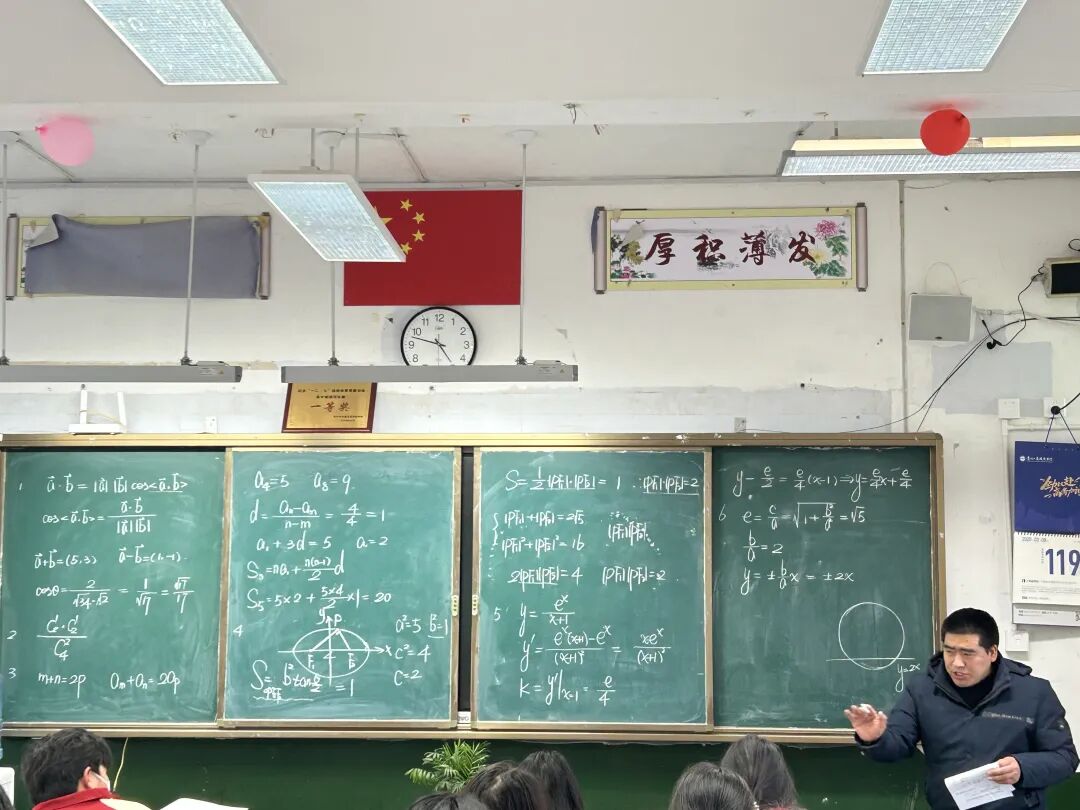 厚积薄发
一等奖
12
1
2
3
4
5
7
8
9
10
11
119
1 a⃗·b⃗=|a⃗||b⃗|cos<a⃗,b⃗>
cos<a⃗,b⃗>=a⃗·b⃗/|a⃗||b⃗|
a⃗+b⃗=(5,3) a⃗-b⃗=(1,-1)
cosθ=2/√34·√2=1/√17=√17/17
2 C₂¹·C₂¹/C₄²
3 m+n=2p aₘ+aₙ=2aₚ
a₄=5 a₈=9
d=aₙ-aₘ/n-m=4/4=1
a₁+3d=5 a₁=2
Sₙ=na₁+n(n-1)/2 d
S₅=5×2+5×4/2×1=20
4 y P x F₁ F₂
a²=5 b²=1
c²=4
c=2
S=b²tanθ/2=1
S=1/2|PF₁|·|PF₂|=1 ∴|PF₁||PF₂|=2
|PF₁|+|PF₂|=2√5
|PF₁|²+|PF₂|²=16
|PF₁||PF₂|
2|PF₁||PF₂|=4 |PF₁||PF₂|=2
5 y=eˣ/x+1
y'=eˣ(x+1)-eˣ/(x+1)²=xeˣ/(x+1)²
k=y'|ₓ₌₁=e/4
y-e/2=e/4(x-1)⇒y=e/4x+e/4
6 e=c/a=√1+b²/a²=√5
b/a=2
y=±b/a x=±2x
y=2x